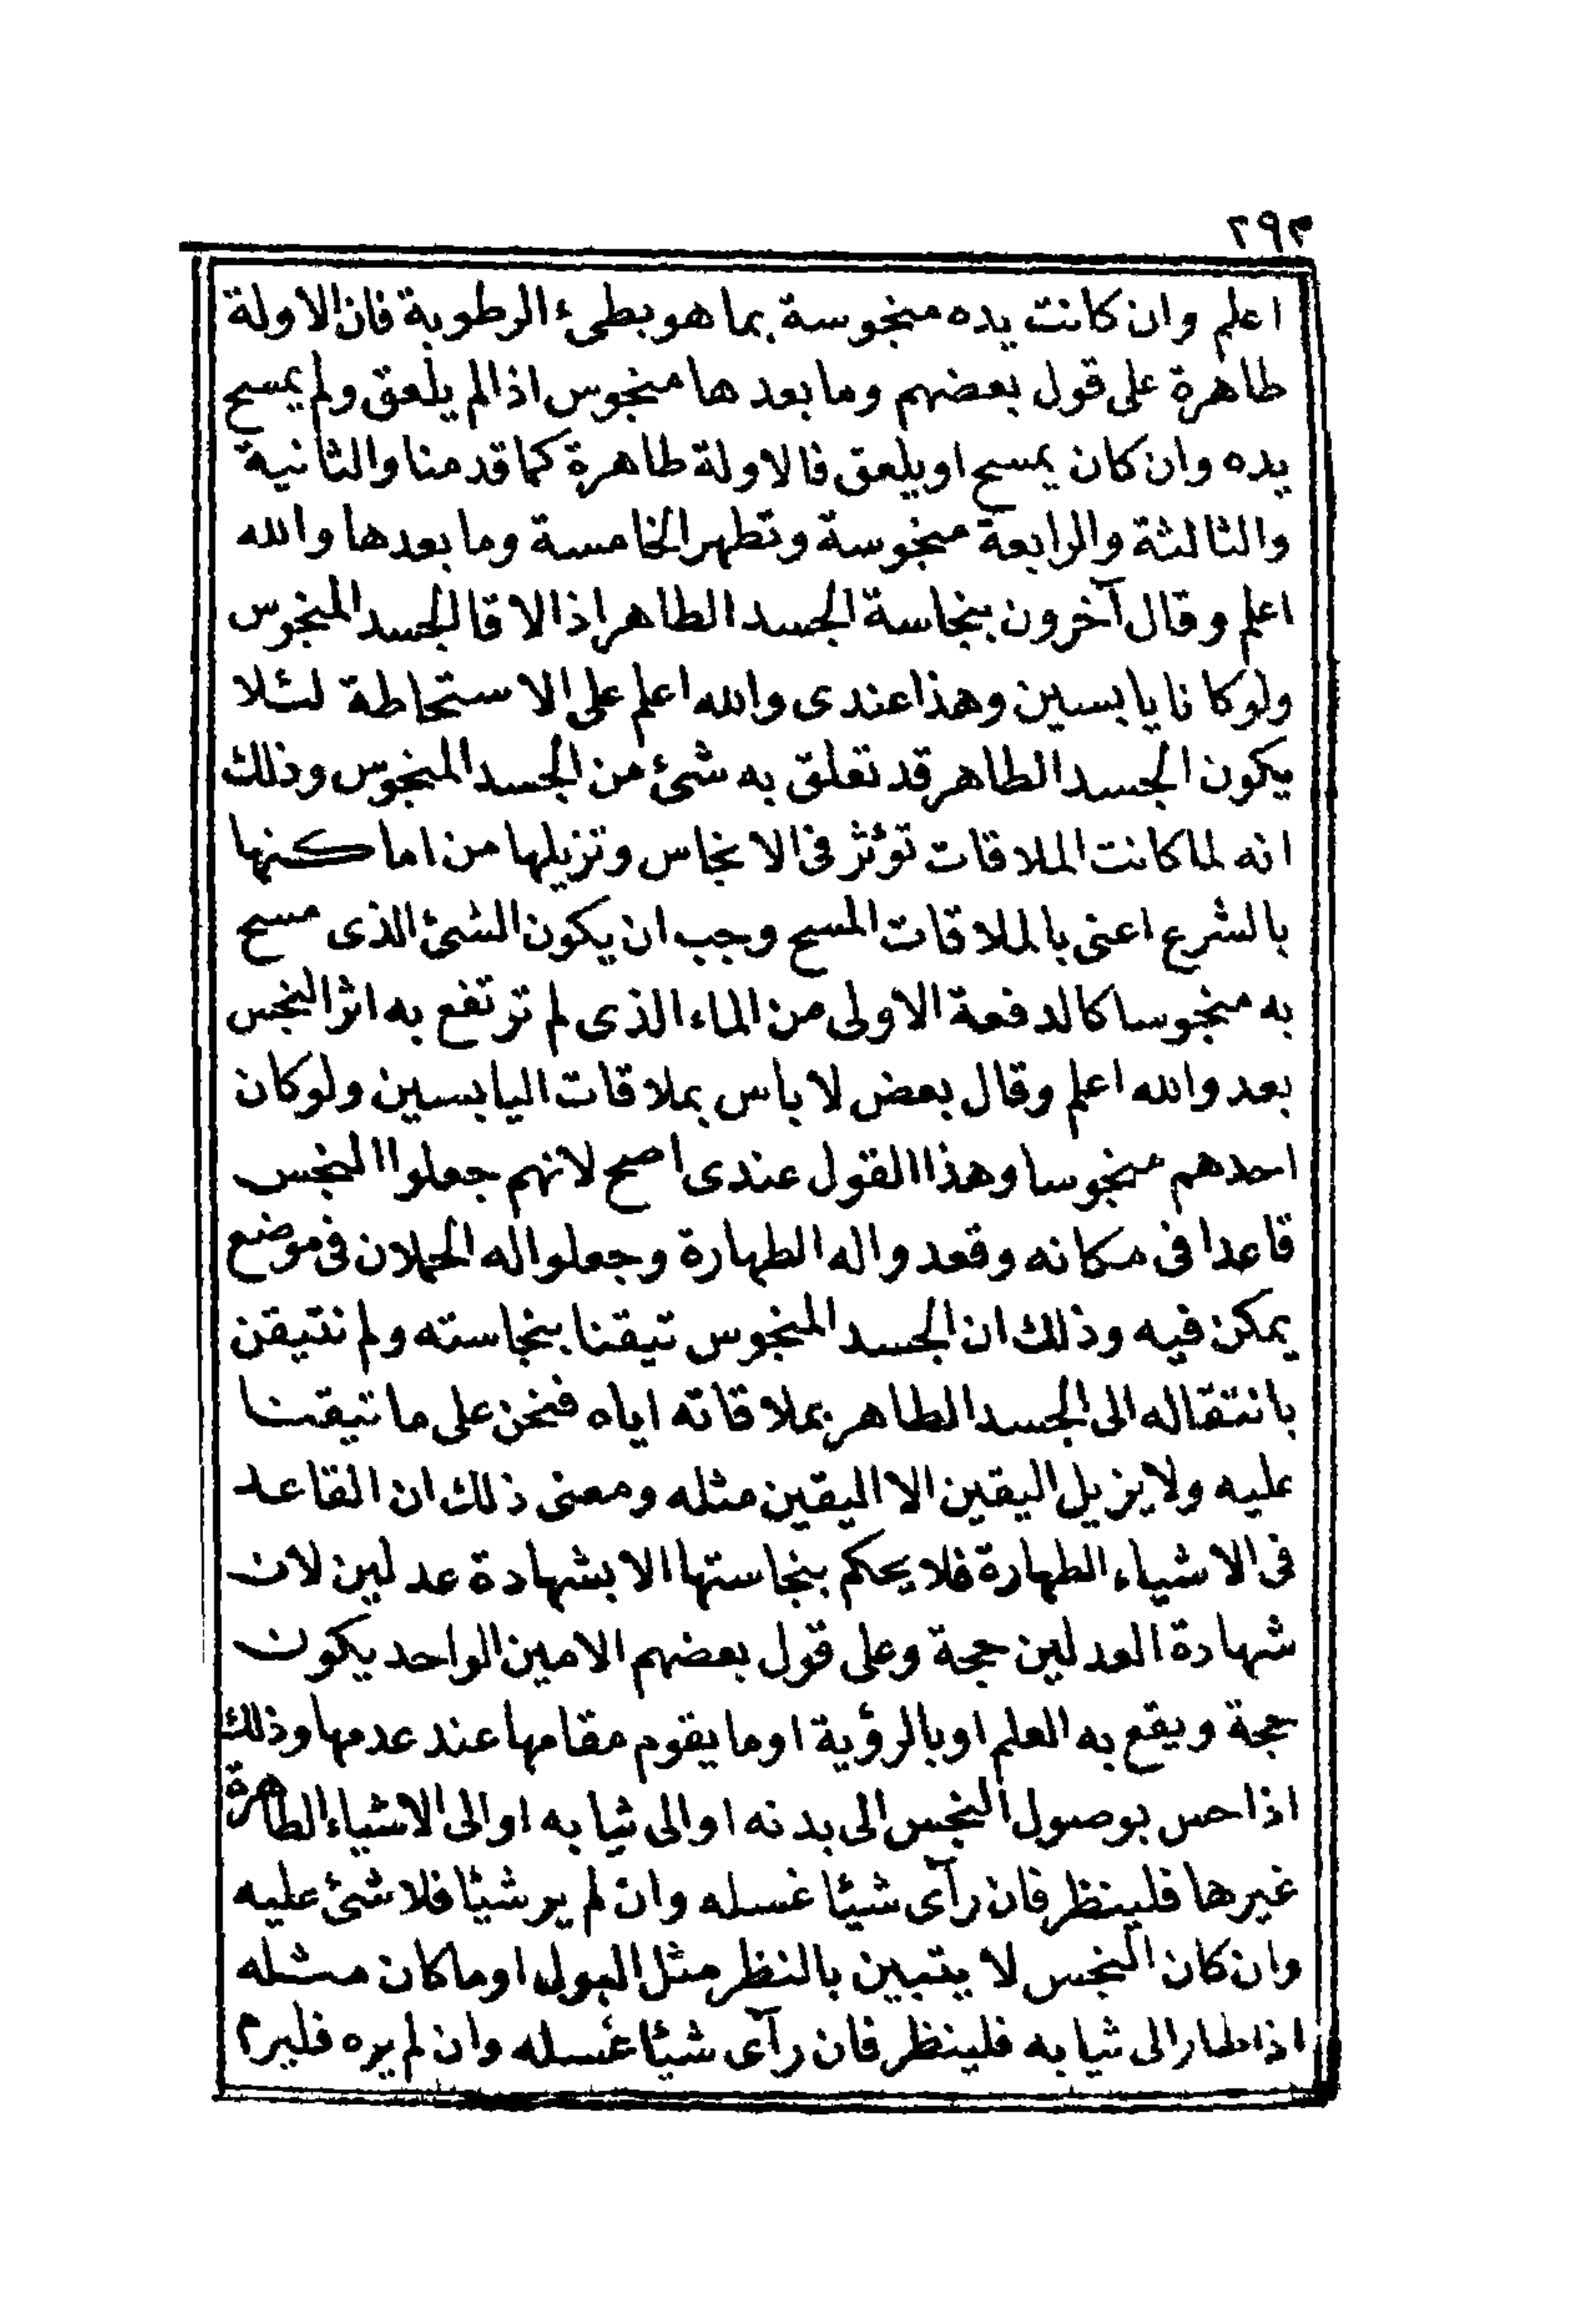 ٢٩٣
اعلم وان كانت يده منجوسة بما هو بطىء الرطوبة فان الاولة
طاهرة على قول بعضهم وما بعدها منجوس اذا لم يلعق ولم يمسح
يده وان كان يمسح او يلعق فالاولة طاهرة كما قدمنا والثانية
والثالثة والرابعة منجوسة وتطهر الخامسة وما بعدها والله
اعلم وقال آخرون بنجاسة الجسد الطاهر اذا لاقا الجسد المنجوس
ولو كانا يابسين وهذا عندى والله اعلم على الاستحاطة لئلا
يكون الجسد الطاهر قد تعلق به شئ من الجسد المنجوس وذلك
انه لما كانت الملاقات تؤثر فى الانجاس وتزيلها من اماكنها
بالشرع اعنى بالملاقات المسح وجب ان يكون الشئ الذى مسح
به منجوسا كالدفعة الاولى من الماء الذى لم ترتفع به اثر النجس
بعد والله اعلم وقال بعض لا باس بملاقات اليابسين ولو كان
احدهم منجوسا وهذا القول عندى اصح لانهم جعلوا النجس
قاعدا فى مكانه وقعدوا له الطهارة وجعلوا له الحملان فى موضع
يمكن فيه وذلك ان الجسد المنجوس تيقنا بنجاسته ولم نتيقن
بانتقاله الى الجسد الطاهر بملاقاته اياه فنحن على ما تيقنا
عليه ولا يزيل اليقين الا اليقين مثله ومعنى ذلك ان القاعد
فى الاشياء الطهارة فلا يحكم بنجاستها الا بشهادة عدلين لان
شهادة العدلين حجة وعلى قول بعضهم الامين الواحد يكون
حجة ويقع به العلم او بالرؤية او ما يقوم مقامها عند عدمها وذلك
اذا حس بوصول النجس الى بدنه او الى ثيابه او الى الاشياء الطاهرة
غيرها فلينظر فان رآى شيئا غسله وان لم ير شيئا فلا شئ عليه
وان كان النجس لا يتبين بالنظر مثل البول او ما كان مثله
اذا طار الى ثيابه فلينظر فان رآى شيئا غسله وان لم يره فليرم